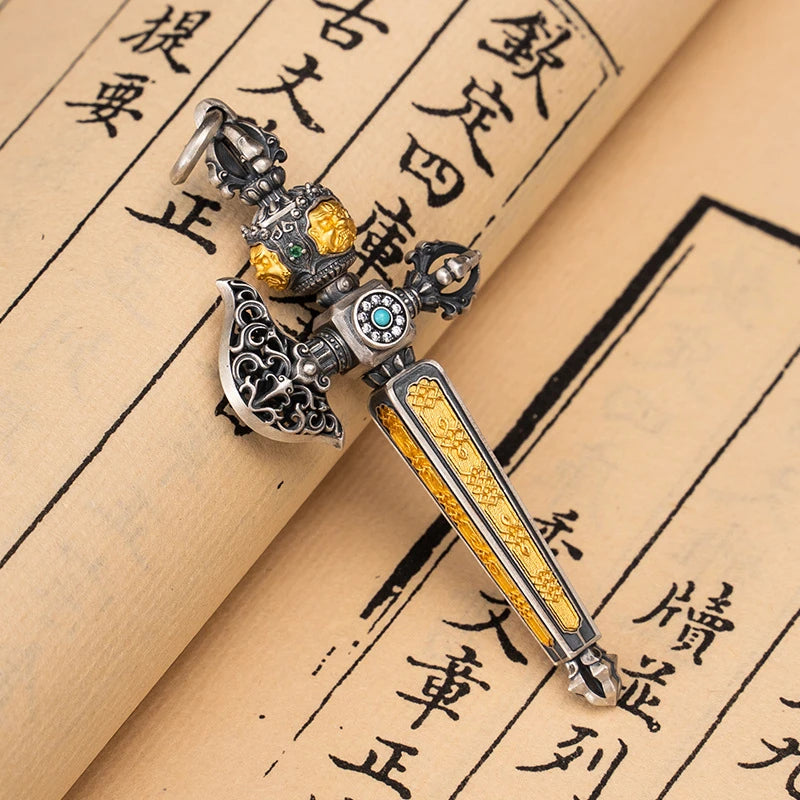 欽定四庫
古文正
提要
九
牘並列
文章正